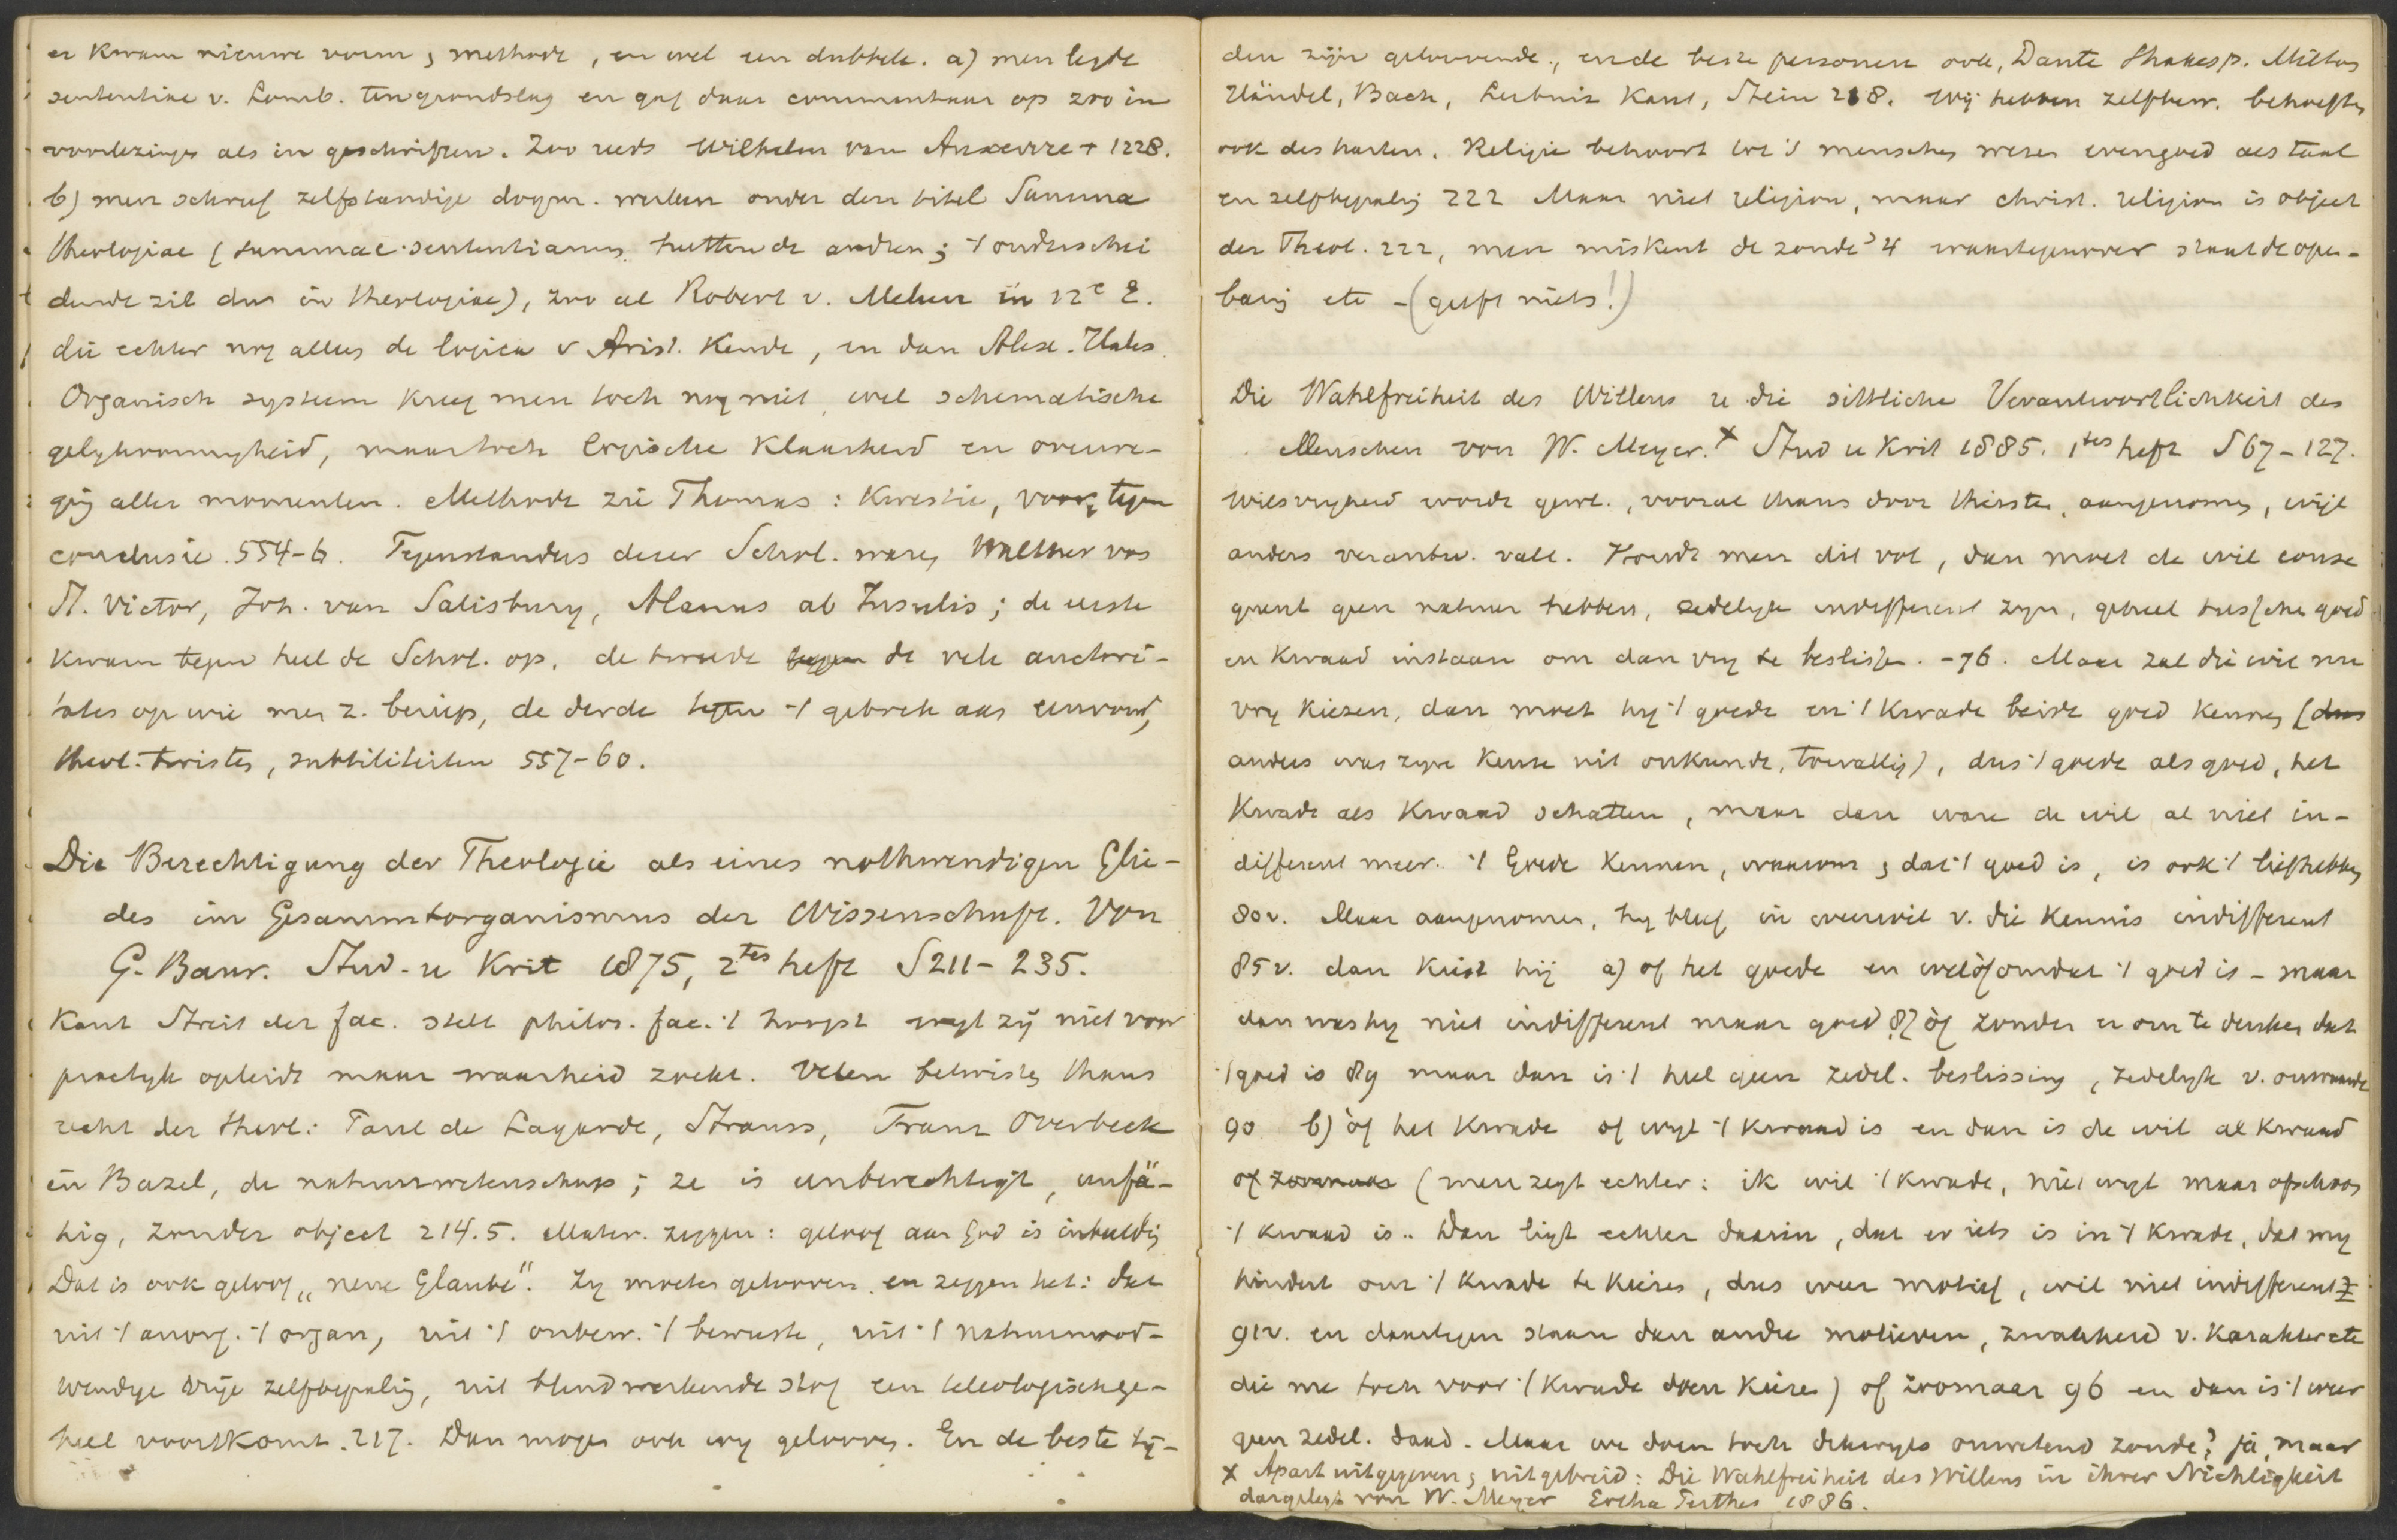 er kwam nieuwe vorm, methode, en wel een dubbele. a) men legde
sententiae v. Lomb. ten grondslag en gaf daar commentaar op zoo in
voorlezingen als in geschriften. Zoo reeds Wilhelm van Auxerre + 1228.
b) men schreef zelfstandige dogm. werken onder den titel Summa
theologiae (summae sententiarum hetten de andren; 't onderschei
dende zit dus in theologiae), zoo al Robert v. Melun in 12e E.
die echter nog alleen de logica v Arist. kende, en dan Alex. Hales.
Organisch systeem kreeg men toch nog niet, wel schematische
gelykvormigheid, maar toch logische klaarheid en overwe-
ging aller momenten. Methode zie Thomas: kwestie, voor, tegen
conclusie. 554-6. Tegenstanders dezer Schol. waren Walther van
St. Victor, Joh. van Salisbury, Alanus ab Insulis; de eerste
kwam tegen heel de Schol. op, de tweede tegen de vele auctori-
tates op wie men z. beriep, de derde tegen 't gebrek aan eenvoud,
theol. twisten, subtiliteiten 557-60.
Die Berechtigung der Theologie als eines nothwendigen Glie-
des im Gesammtorganismus der Wissenschaft. Von
G. Baur. Stud. u Krit 1875, 2tes heft S 211-235.
Kant Streit der fac. stelt philos. fac. 't hoogst wyl zij niet voor
practyk opleidt maar waarheid zoekt. Velen betwisten thans
recht der theol: Paul de Lagarde, Strauss, Franz Overbeck
in Bazel, de natuurwetenschap; ze is unberechtigt, unfä-
hig, zonder object 214.5. Mater. zeggen: geloof aan God is onhoudbaar
Dat is ook geloof, "neue Glaube". Zy moeten gelooven en zeggen het: dat
uit 't anorg. 't organ, uit 't onbew. 't bewuste, uit 't natuurnood-
wendige vrije zelfbepaling, uit blindwerkende stof een teleologisch ge-
heel voortkomt. 217. Dan mogen ook wy gelooven. En de beste tij-
den zijn geloovende, en de beste personen ook, Dante Shakesp. Milton
Händel, Bach, Leibniz Kant, Stein 218. Wij hebben zelfbew. behoeften
ook des harten. Religie behoort tot 's menschen wezen evengoed als taal
en zelfbepaling 222 Maar niet religion, maar christ. religion is object
der Theol. 222, men miskent de zonde 4 waartegenover staat de open-
baring etc - (geeft niets!)
Die Wahlfreiheit des Willens u die sittliche Verantwortlichkeit des
Menschen von W. Meyer. x Stud u Krit 1885. 1tes heft S 67-127.
Wilsvryheid wordt gewl., vooral thans door theisten, aangenomen, wijl
anders verantw. valt. Houdt men dit vol, dan moet de wil conse
quent geen natuur hebben, zedelyk indifferent zyn, geheel tusschen goed
en kwaad instaan om dan vry te beslissen. -76. Maar zal die wil nu
vry kiezen, dan moet hy 't goede en 't kwade beide goed kennen (dus
anders was zyne keuze uit onkunde, toevallig), dus 't goede als goed, het
kwade als kwaad schatten, maar dan ware de wil al niet in-
different meer. 't Goede kennen, waarom, dat 't goed is, is ook 't liefhebben
80v. Maar aangenomen, hy bleef in weerwil v. die kennis indifferent
85v. dan kiest hij a) of het goede en wel òf omdat 't goed is - maar
dan was hy niet indifferent maar goed 87 òf zonder er om te denken dat
't goed is 89 maar dan is 't heel geen zedel. beslissing, zedelyk v. onwaarde
90 b) òf het kwade of wyl 't kwaad is en dan is de wil al kwaad
of zoomaar (men zegt echter: ik wil 't kwade, niet wyl maar ofschoon
't kwaad is.. Dan ligt echter daarin, dat er iets is in 't kwade, dat my
hindert om 't kwade te kiezen, dus weer motief, wil niet indifferent
91v. en daartegen staan dan andre motieven, zwakheid v. karakter etc
die me toch voor 't kwade doen kiezen) of zoomaar 96 en dan is 't weer
geen zedel. daad. Maar we doen toch dikwyls onwetend zonde? ja, maar
x Apart uitgegeven, uitgebreid: Die Wahlfreiheit des Willens in ihrer Nichtigkeit
dargelegt von W. Meyer Gotha Perthes 1886.